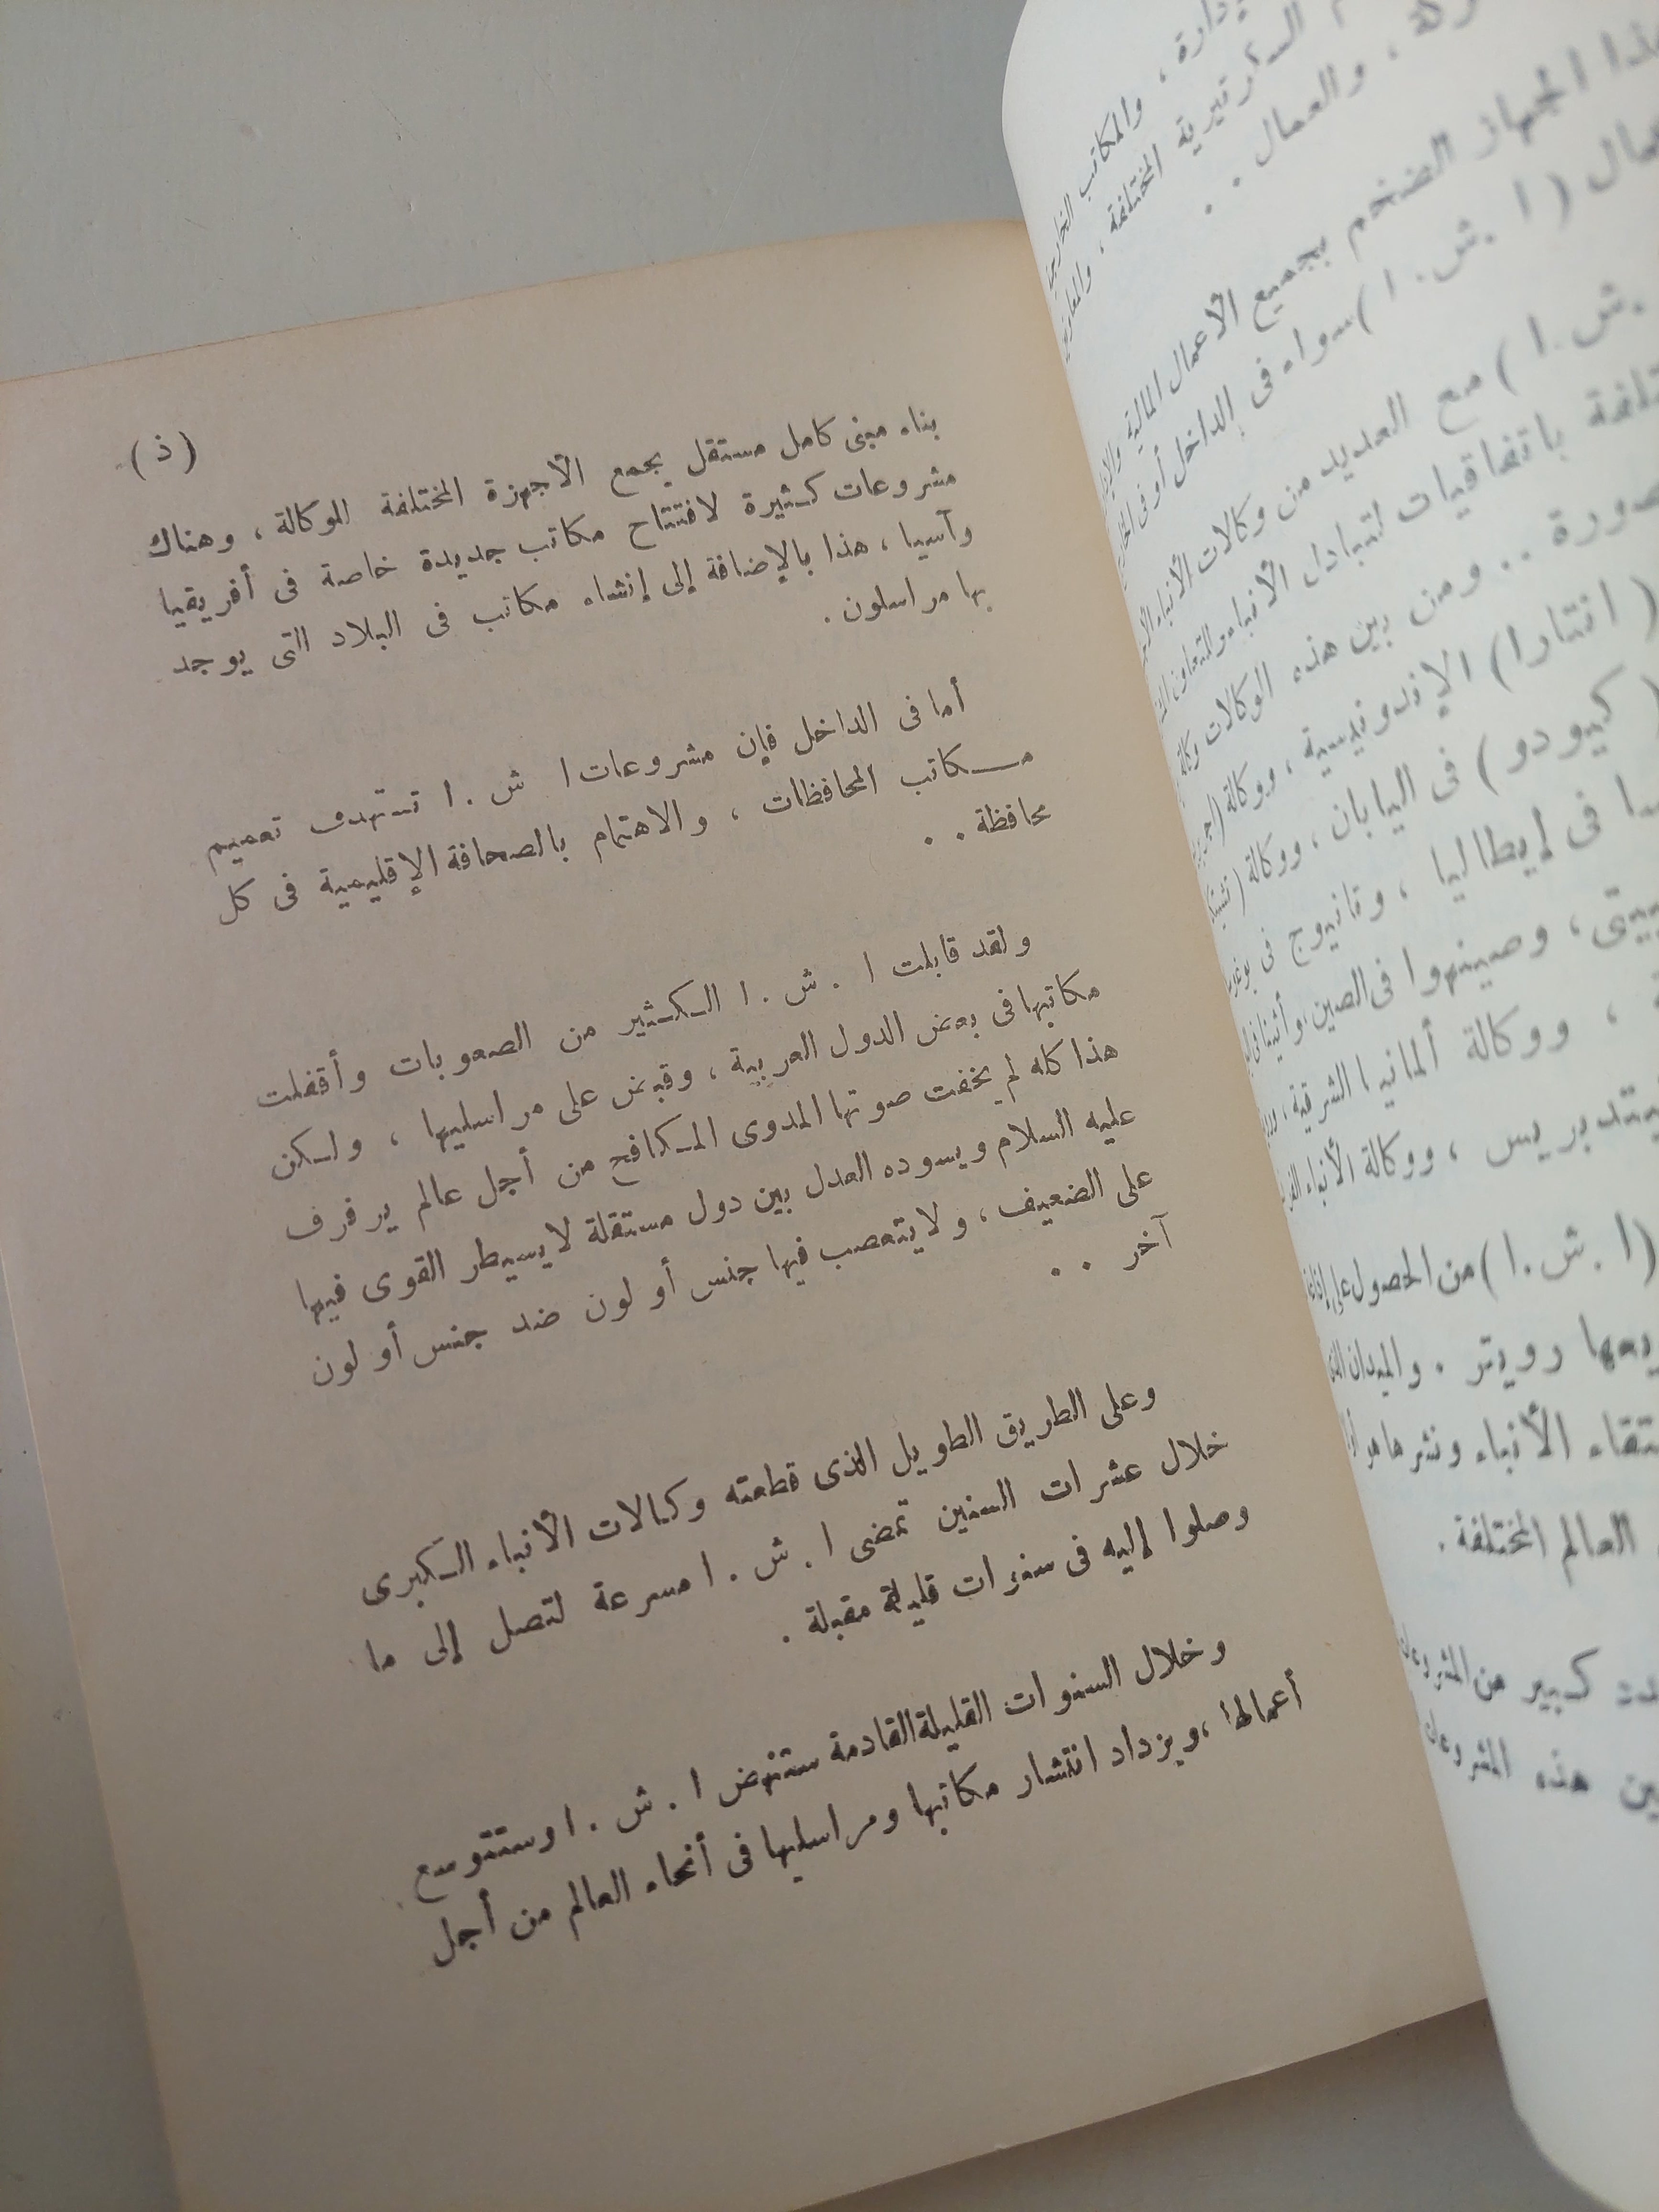 دارة ، والمكاتب الخارجية
السكرتيرية المختلفة ،
والعمال . .
هذا الجهاز الضخم بجميع الأعمال المالية
( ا . ش . ا ) سواء فى الداخل أو فى
ش . ا ) مع العديد من وكالات الأنباء
باتفاقيات لتبادل الأنباء والتعاون
ومن بين هذه الوكالات وكالة
( انتارا ) الإندونيسية ، ووكالة
( كيودو ) فى اليابان ، ووكالة
فى إيطاليا ، وتانيوج فى
وصينهوا فى الصين ، وأثينا فى
، ووكالة ألمانيا الشرقية ،
بريس ، ووكالة الأنباء
( ا . ش . ا ) من الحصول على
رويتر . والميدان الذى
الأنباء ونشرها هو
العالم المختلفة .
كبير من المشروعات
هذه المشروعات
( ذ )
بناء مبنى كامل مستقل يجمع الأجهزة المختلفة للوكالة ، وهناك
مشروعات كثيرة لافتتاح مكاتب جديدة خاصة فى أفريقيا
وآسيا ، هذا بالإضافة إلى إنشاء مكاتب فى البلاد التى يوجد
بها مراسلون .
أما فى الداخل فإن مشروعات ا ش . ا تستهدف تعميم
مكاتب المحافظات ، والاهتمام بالصحافة الإقليمية فى كل
محافظة . .
ولقد قابلت ا . ش . ا الكثير من الصعوبات وأقفلت
مكاتبها فى بعض الدول العربية ، وقبض على مراسليها ، ولكن
هذا كله لم يخفت صوتها المدوى المكافح من أجل عالم يرفرف
عليه السلام ويسوده العدل بين دول مستقلة لا يسيطر القوى فيها
على الضعيف ، ولا يتعصب فيها جنس أو لون ضد جنس أو لون
آخر . .
وعلى الطريق الطويل الذى قطعته وكالات الأنباء الكبرى
خلال عشرات السنين تمضى ا . ش . ا مسرعة لتصل إلى ما
وصلوا إليه فى سنوات قليلة مقبلة .
وخلال السنوات القليلة القادمة ستنهض ا . ش . ا وستتوسع
أعمالها ، ويزداد انتشار مكاتبها ومراسليها فى أنحاء العالم من أجل